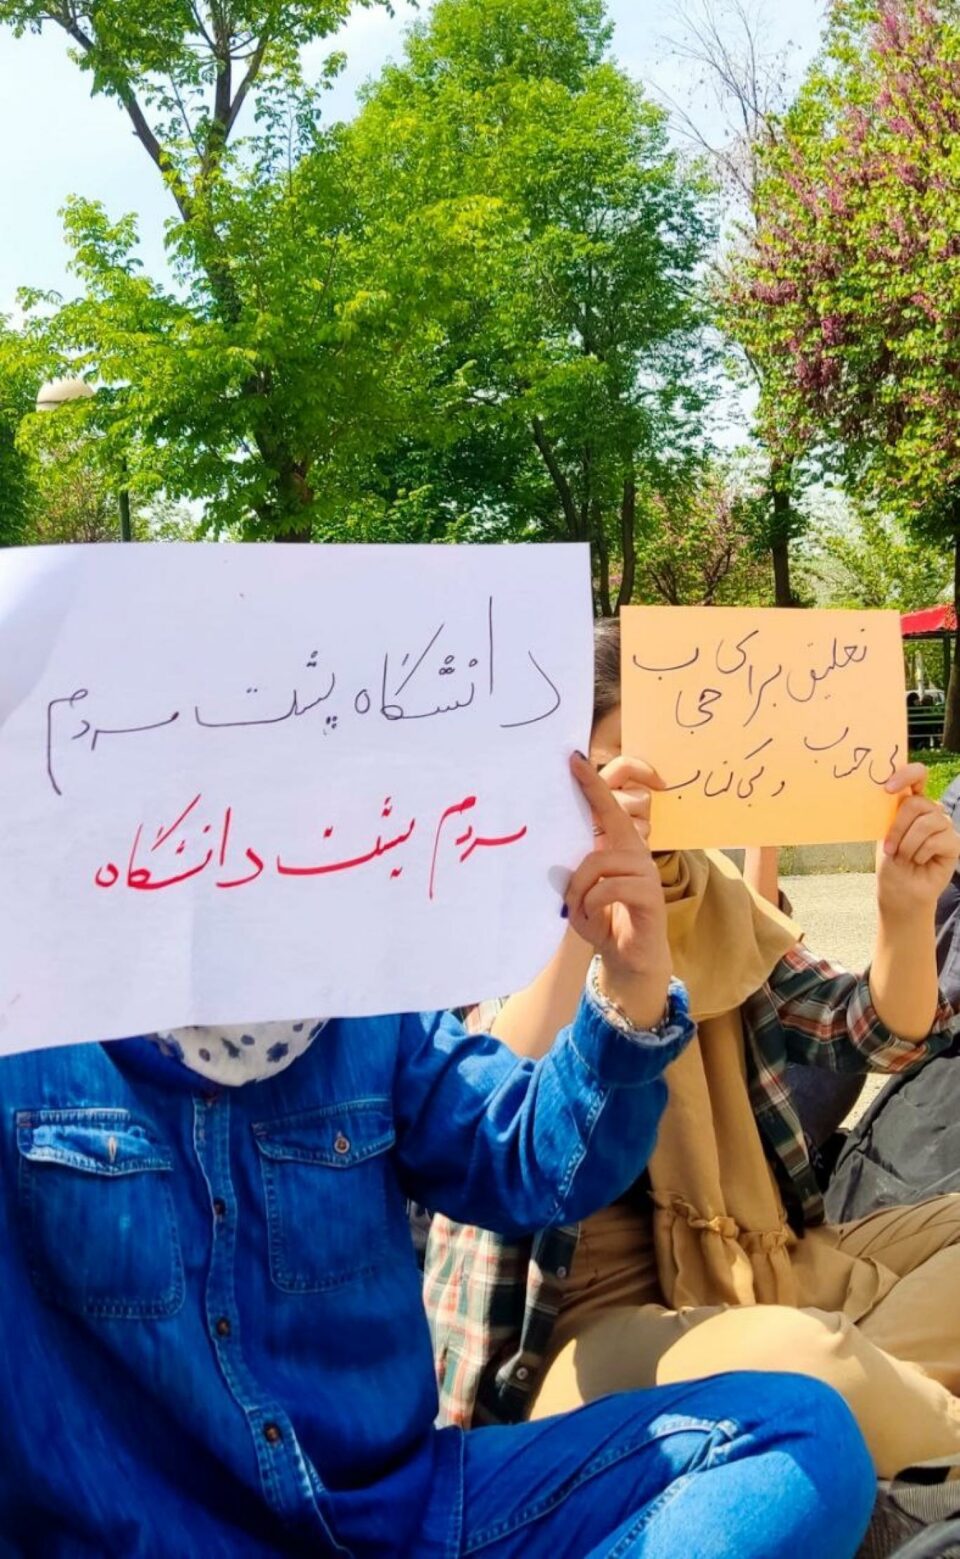 دانشگاه پشت مردم
مردم پشت دانشگاه
تعلیق برای
حجاب
بی حساب
و بی کتاب